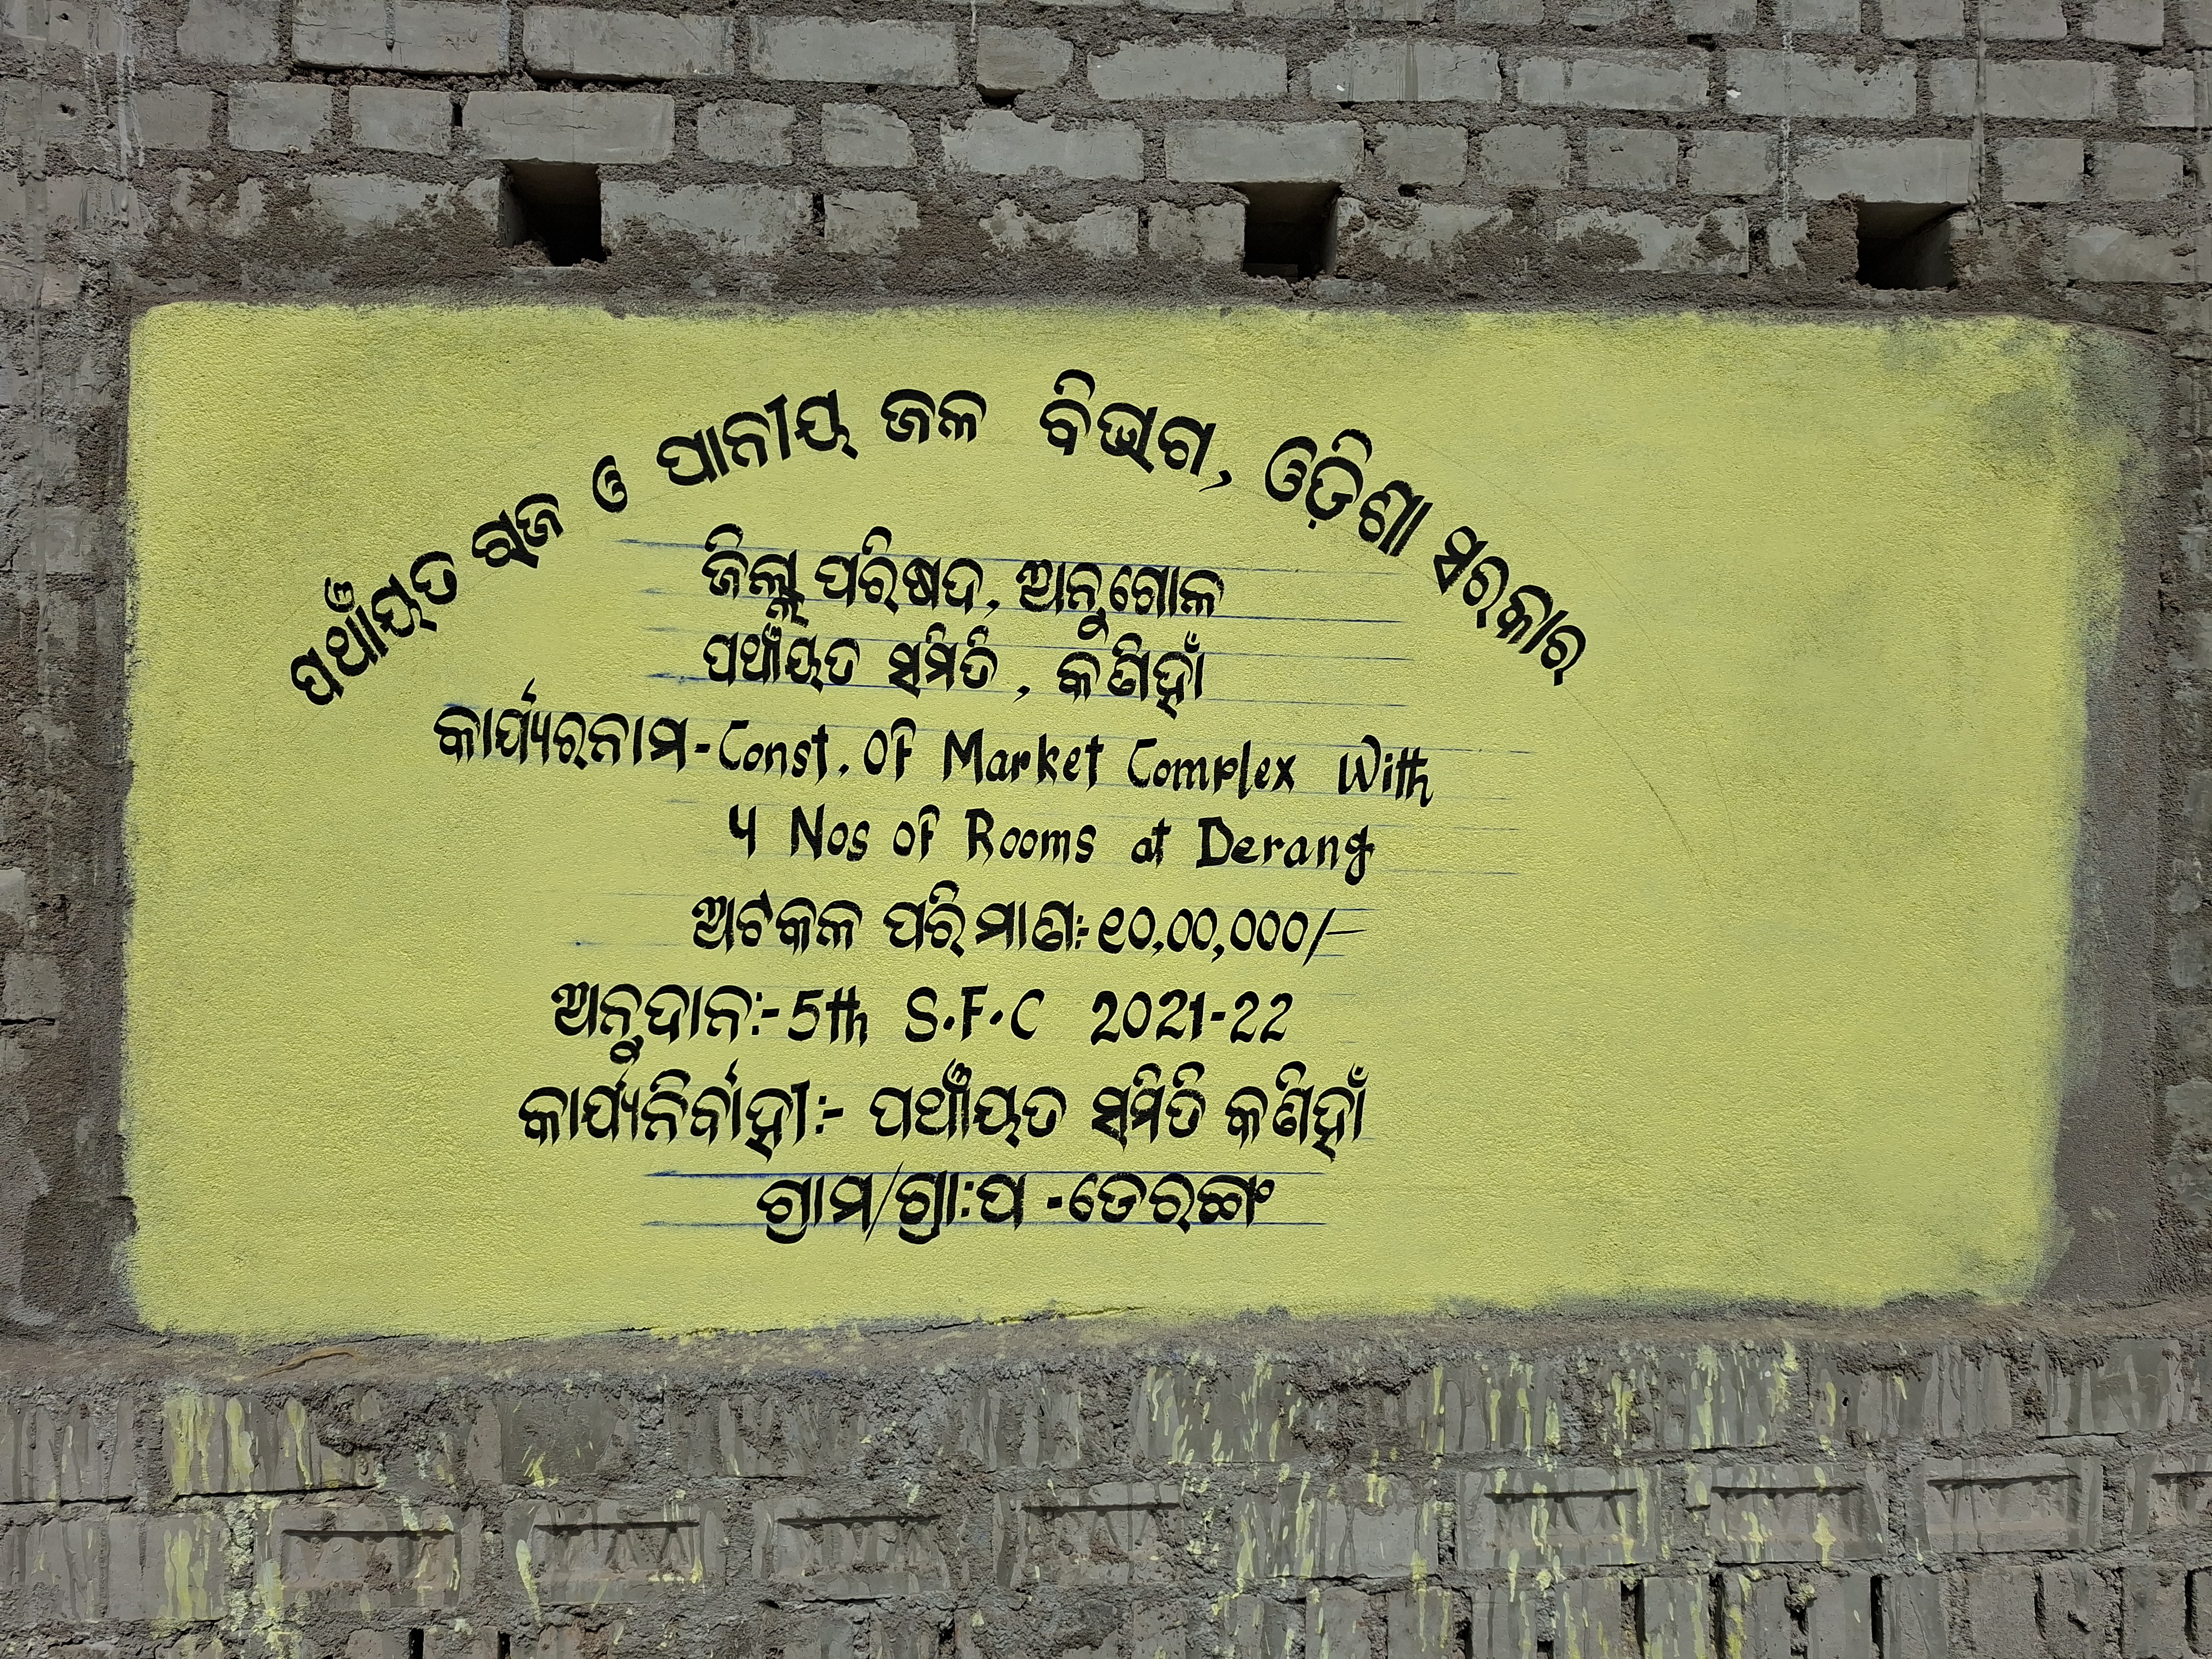 ପଞ୍ଚାୟତ ରାଜ ଓ ପାନୀୟ ଜଳ ବିଭାଗ, ଓଡ଼ିଶା ସରକାର
ଜିଲ୍ଲା ପରିଷଦ, ଅନୁଗୋଳ
ପଞ୍ଚାୟତ ସମିତି, କଣିହାଁ
କାର୍ଯ୍ୟରନାମ-Const. Of Market Complex With
4 Nos of Rooms at Derang
ଅଟକଳ ପରିମାଣ:-୧୦,୦୦,୦୦୦/-
ଅନୁଦାନ:-5th S.F.C 2021-22
କାର୍ଯ୍ୟନିର୍ବାହୀ:- ପଞ୍ଚାୟତ ସମିତି କଣିହାଁ
ଗ୍ରାମ/ଗ୍ରା:ପ -ଡେରଙ୍ଗ